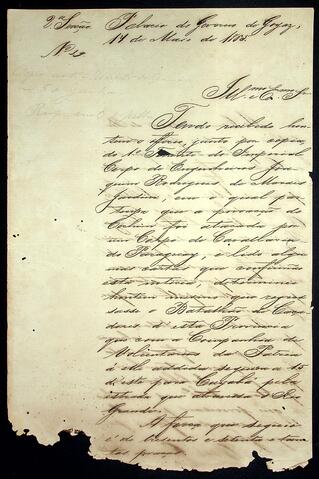 2.ª Secção Palacio do Governo de Goyaz,
14 de Maio de 1865.
Nº 19
Ill.mo e Ex.mo Sr.
Tendo recebido hon-
tem o officio, junto por copia,
do 1.º Tenente do Imperial
Corpo de Engenheiros Joa-
quim Rodrigues de Moraes
Jardim, com o qual par-
ticipa que a povoação de
Coxim foi atacada por
um Corpo de Cavallaria
do Paraguay, e lido algu-
mas cartas que confirmão
esta noticia, determinei
hontem mesmo que regres-
sasse o Batalhão de Caça-
dores d'esta Provincia
que com a Companhia de
Voluntarios da Patria
á elle addida seguira a 10
d'este para Cuyabá pela
estrada que atravessa o Rio
Grande.
A força que seguio
é de duzentos e setenta e tan-
tas praças